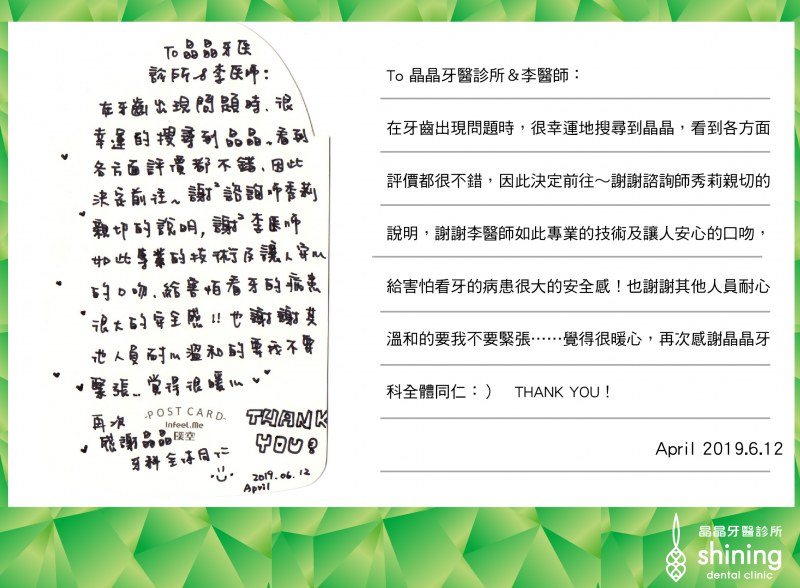 To 晶晶牙医
診所&李医师:
在牙齒出現問題時、很
幸運的搜尋到晶晶、看到
各方面評價都不錯、因此
決定前往~謝²諮詢师秀莉
親切的說明,謝²李医师
如此專業的技術及讓人安心
的口吻、給害怕看牙的病患
很大的安全感!!也謝謝其
他人員耐心溫和的要我不要
緊張..覺得很暖心
再次
感謝晶晶
牙科全体同仁
-POST CARD-
InFeeL.Me
THANK
YOU!
2019.06.12
April
To 晶晶牙醫診所&李醫師:
在牙齒出現問題時,很幸運地搜尋到晶晶,看到各方面
評價都很不錯,因此決定前往~謝謝諮詢師秀莉親切的
說明,謝謝李醫師如此專業的技術及讓人安心的口吻,
給害怕看牙的病患很大的安全感!也謝謝其他人員耐心
溫和的要我不要緊張⋯⋯覺得很暖心,再次感謝晶晶牙
科全體同仁:) THANK YOU!
April 2019.6.12
晶晶牙醫診所
shining
dental clinic